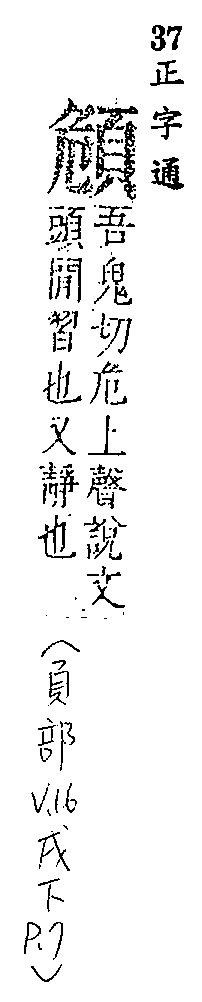 37 正字通
頠
吾鬼切危上聲說文
頭閑習也又靜也
(頁部 V.16 戌下 P.7)